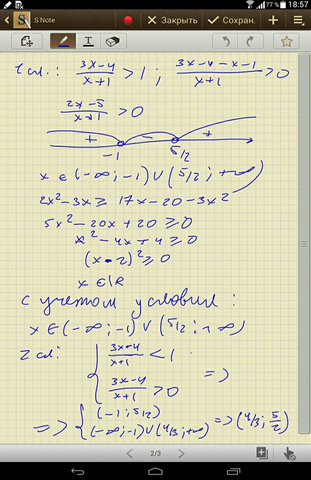 18:57
77%
S Note
Закрыть
Сохран.
1 сл.: (3x-4)/(x+1) > 1; (3x-4-x-1)/(x+1) > 0
(2x-5)/(x+1) > 0
+ - +
-1 5/2
x ∈ (-∞; -1) ∪ (5/2; +∞)
2x² - 3x ≥ 17x - 20 - 3x²
5x² - 20x + 20 ≥ 0
x² - 4x + 4 ≥ 0
(x - 2)² ≥ 0
x ∈ ℝ
с учетом условия:
x ∈ (-∞; -1) ∪ (5/2; +∞)
2 сл: { (3x-4)/(x+1) < 1
(3x-4)/(x+1) > 0 =>
=> { (-1; 5/2)
(-∞; -1) ∪ (4/3; +∞) => (4/3; 5/2)
2/3